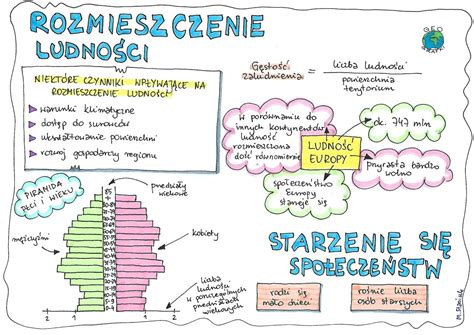 ROZMIESZCZENIE
LUDNOŚCI
GEO
NIEKTÓRE CZYNNIKI WPŁYWAJĄCE NA
ROZMIESZCZENIE LUDNOŚCI
warunki klimatyczne
dostęp do surowców
ukształtowanie powierzchni
rozwój gospodarczy regionu
Gęstość
zaludnienia
=
liczba ludności
powierzchnia
terytorium
W porównaniu do
innych kontynentów
ludność
rozmieszczona
dość równomiernie
LUDNOŚĆ
EUROPY
ok. 747 mln
przyrasta bardzo
wolno
społeczeństwo
Europy
starzeje się
PIRAMIDA
PŁCI I WIEKU
przedziały
wiekowe
mężczyźni
kobiety
liczba
ludności
w poszczególnych
przedziałach
wiekowych
2 1 1 2
STARZENIE SIĘ
SPOŁECZEŃSTW
rodzi się
mało dzieci
rośnie liczba
osób starszych